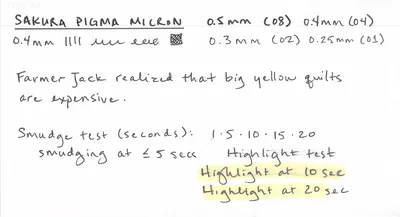 SAKURA PIGMA MICRON 0.5mm (08) 0.4mm (04)
0.4mm 0.3mm (02) 0.25mm (01)
Farmer Jack realized that big yellow quilts
are expensive.
Smudge test (seconds): 1 · 5 · 10 · 15 · 20
smudging at ≤ 5 secs Highlight test
Highlight at 10 sec
Highlight at 20 sec